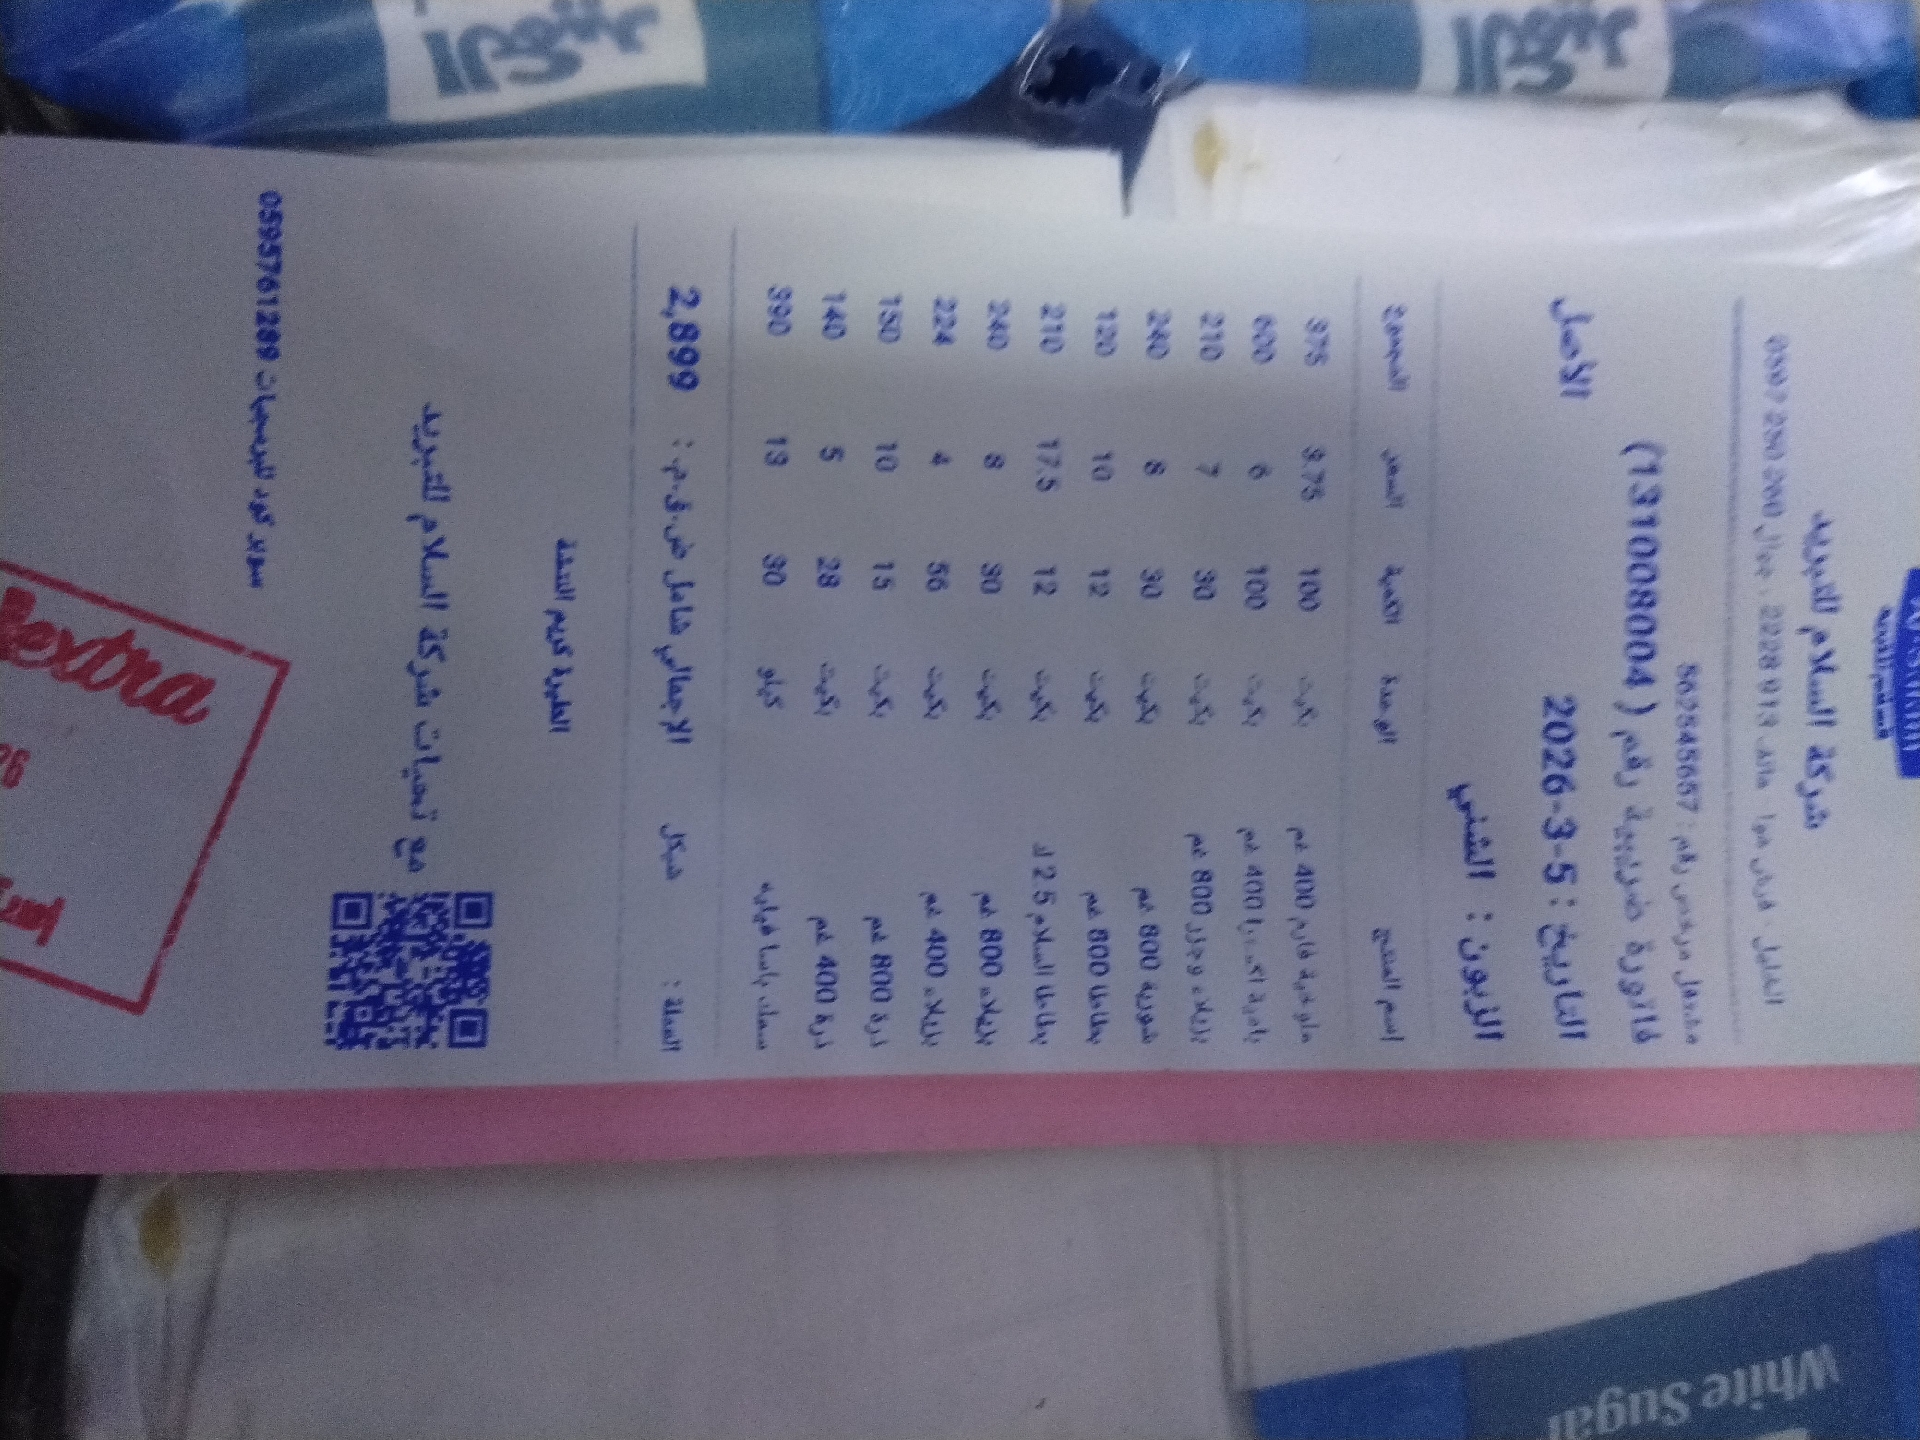 شركة السلام للتبريد
مشتغل مرخص رقم: 562845687
فاتورة ضريبية رقم ( 131008004)
التاريخ : 5-3-2026 الأصل
الزبون :
اسم المنتج الوحدة الكمية السعر المجموع
ملوخية فارم 400 غم بكيت 100 3.75 375
بامية اكسترا 400 غم بكيت 100 6 600
بازيلاء وجزر 800 غم بكيت 30 7 210
شوربة 800 غم بكيت 30 8 240
بطاطا 800 غم بكيت 12 10 120
بطاطا السلام 2.5 ك بكيت 12 17.5 210
بازيلاء 800 غم بكيت 30 8 240
بازيلاء 400 غم بكيت 56 4 224
ذرة 800 غم بكيت 15 10 150
ذرة 400 غم بكيت 28 5 140
سمك باسا فيليه كيلو 30 13 390
العملة : شيكل الإجمالي شامل ض.ق.م. : 2,899
مع تحيات شركة السلام للتبريد
سوبر كود للبرمجيات 0595761289
extra
White Sugar